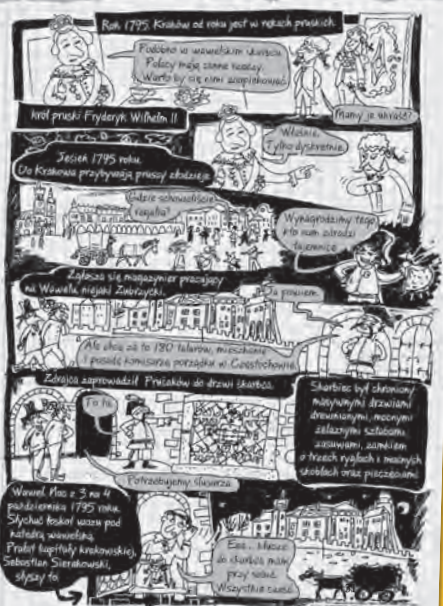 Rok 1795. Kraków od roku jest w rękach pruskich.
Podobno w wawelskim skarbcu
Polacy mają cenne rzeczy.
Warto by się nimi zaopiekować.
król pruski Fryderyk Wilhelm II
Mamy je ukraść?
Właśnie.
Tylko dyskretnie.
Jesień 1795 roku.
Do Krakowa przybywają pruscy złodzieje.
Gdzie schowaliście
regalia?
Wynagrodzimy tego,
kto nam zdradzi
tajemnicę.
Zgłasza się magazynier pracujący
na Wawelu, niejaki Zubrzycki.
Ja powiem.
Ale chcę za to 180 talarów, mieszkanie
i posadę komisarza porządku w Częstochowie.
Zdrajca zaprowadził Prusaków do drzwi skarbca.
To tu.
Skarbiec był chroniony
masywnymi drzwiami
drewnianymi, mocnymi
żelaznymi sztabami
zasuwami, zamkiem
o trzech ryglach i mocnych
skoblach oraz pieczęciami.
Potrzebujemy ślusarza.
Wawel. Noc z 3 na 4
października 1795 roku.
Słychać łoskot wozu pod
katedrą wawelską.
Prałat kapituły krakowskiej,
Sebastian Sierakowski,
słyszy to.
klucze
do skarbca mam
przy sobie.
Wszystkie sześć.